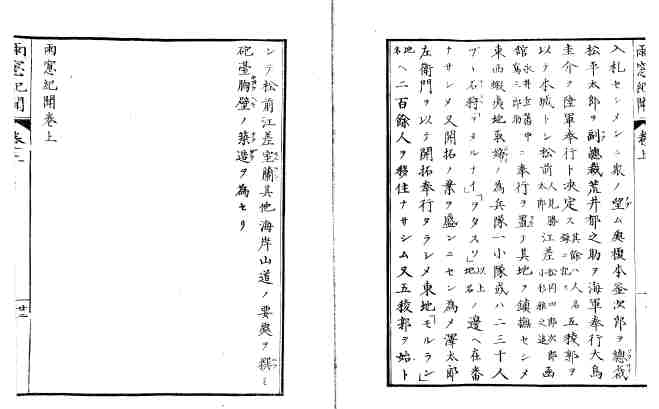 雨窓紀聞 卷上
入札セシメンニ衆ノ望ム奥榎本釜次郎ヲ總裁
松平太郎ヲ副總裁荒井郁之助ヲ海軍奉行大鳥
圭介ヲ陸軍奉行ト决定ス其餘ハ人名録ニ記ス五稜郭ヲ
以テ本城トシ松前人見勝太郎江差松岡四郎次郎小杉雅之進函
館永井玄蕃中島三郎助ニ奉行ヲ置テ其地ヲ鎮撫セシメ
東西蝦夷地取締ノ為兵隊一小隊或ハ二三十人
ヅヽ石狩「テルナイ」「ヲタスツ」以上地名ノ邊ヘ在番
ナサシメ又開拓ノ業ヲ盛ンニセン為メ澤太郎
左衛門ヲ以テ開拓奉行タラシメ東地「モルラン」
地名ヘ二百餘人ヲ移住ナサシム又五稜郭ヲ始ト
シテ松前江差室蘭其他海岸山道ノ要奥ヲ撰ミ
砲臺胸壁ノ築造ヲ為セリ
雨窓紀聞卷上
雨窓紀聞
廿二